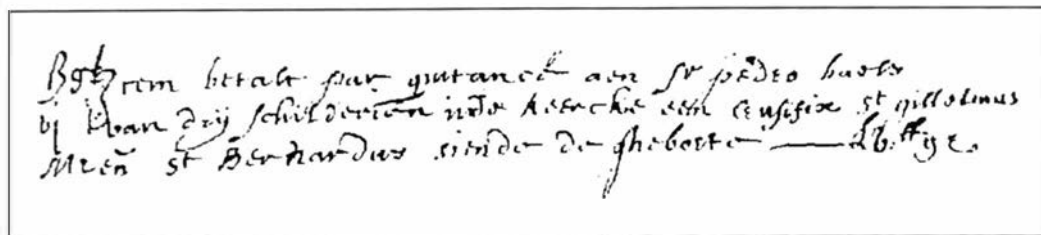 Item betalt par quitance aen sr pedro baels
van dry schilderien inde keercke een crusifix st gillelmus
en st Bernardus siende de gheborte